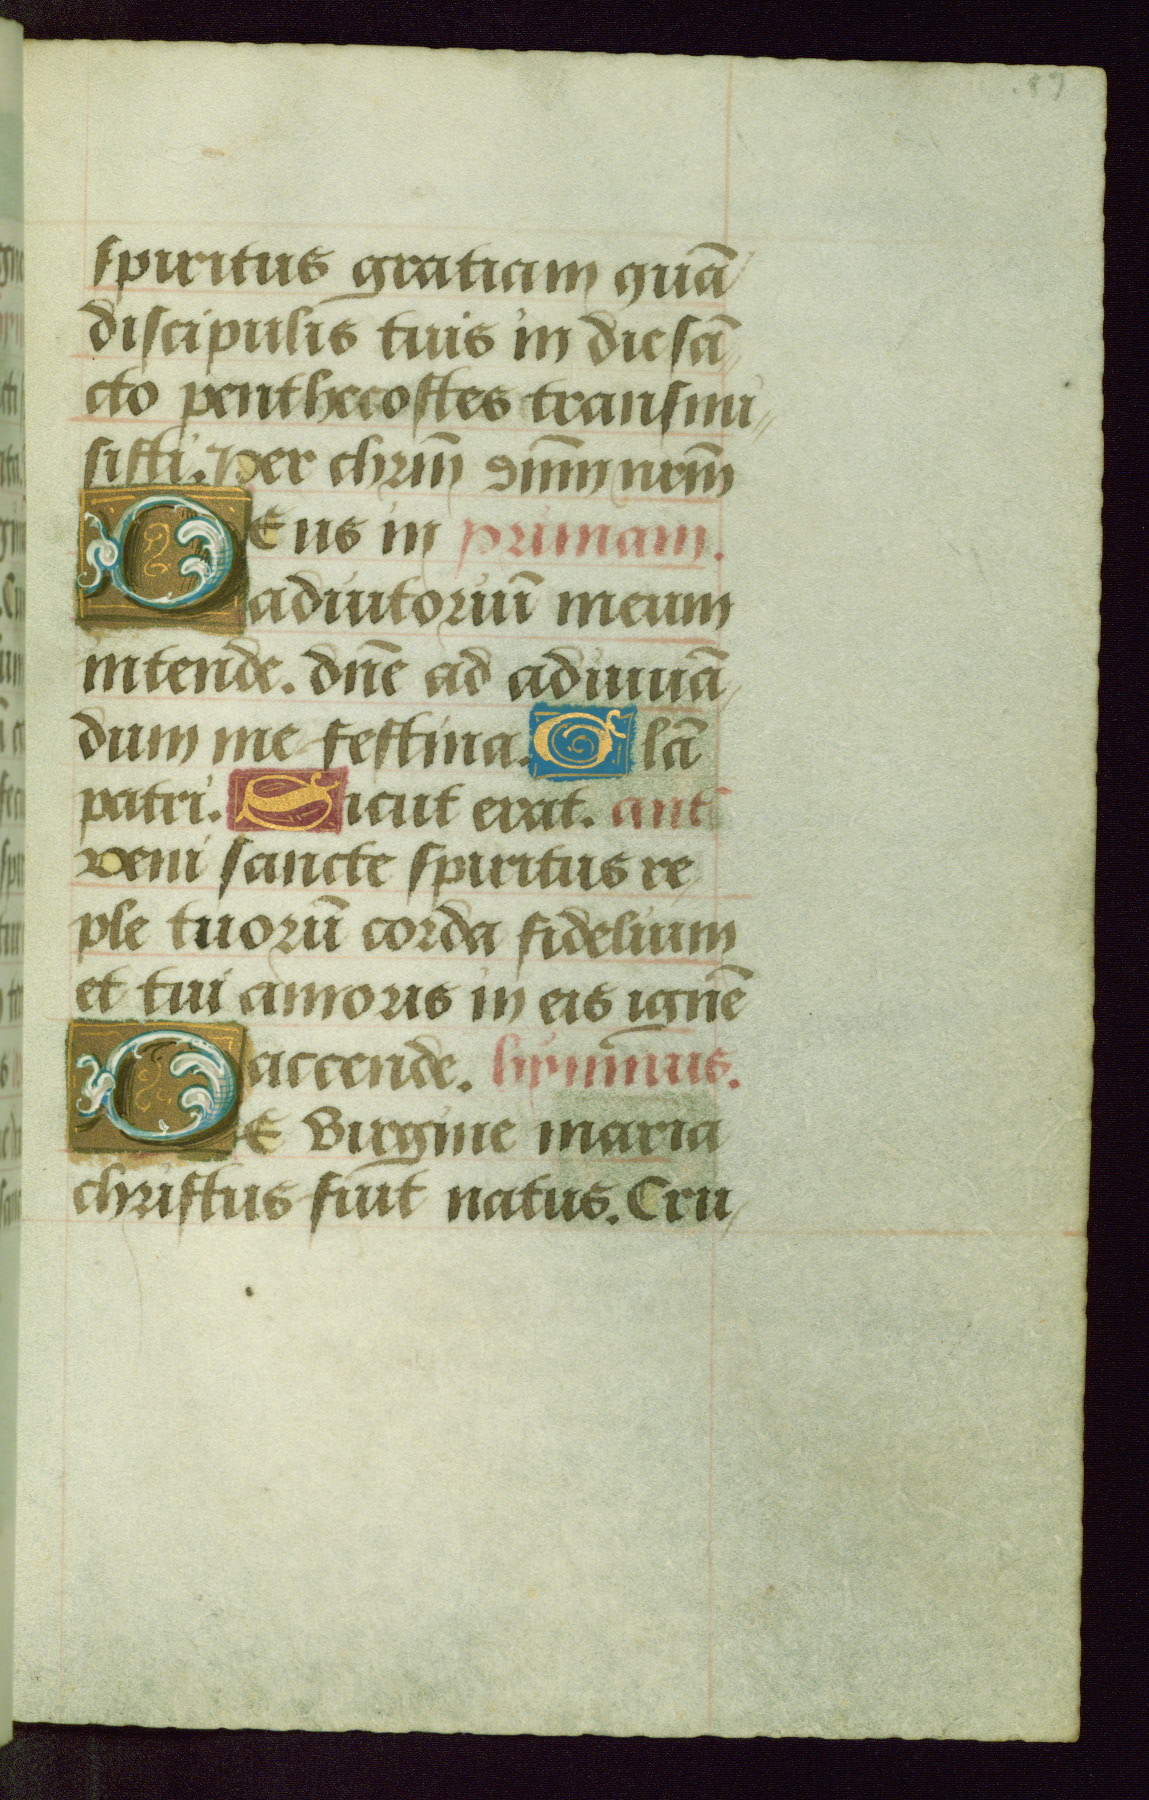 spiritus gratiam quā
discipulis tuis in die sā
cto penthecostes transmi
sisti. Per chrm̄ dnm̄ nrm̄
DEus in primam.
adiutoriū meum
intende. dn̄e ad adiuuā
dum me festina. Glā
patri. Sicut erat. ant
veni sancte spiritus re
ple tuorū corda fidelium
et tui amoris in eis ignē
accende. hymnus.
DE Virgine maria
christus fuit natus. Cru